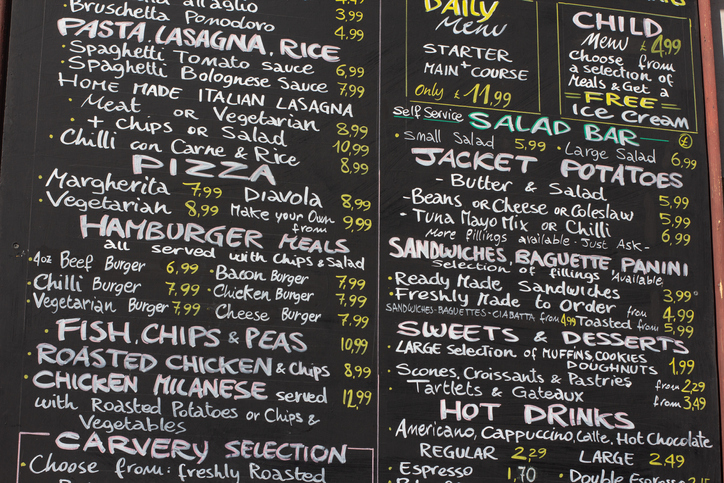 Bruschetta Pomodoro 3,99
4.99
PASTA, LASAGNA, RICE
• Spaghetti Tomato sauce 6,99
• Spaghetti Bolognese Sauce 7,99
HOME MADE ITALIAN LASAGNA
• Meat or Vegetarian 8,99
• + chips or Salad 10,99
• Chilli con Carne & Rice 8,99
PIZZA
• Margherita 7,99 Diavola 8,99
• Vegetarian 8,99 Make your Own from 9,99
HAMBURGER MEALS
all served with Chips & Salad
• 4oz Beef Burger 6,99 • Bacon Burger 7,99
• Chilli Burger 7,99 • Chicken Burger 7,99
• Vegetarian Burger 7,99 Cheese Burger 7,99
• FISH, CHIPS & PEAS 10,99
• ROASTED CHICKEN & Chips 8,99
• CHICKEN MILANESE served 12,99
with Roasted Potatoes or Chips &
Vegetables
CARVERY SELECTION
• Choose from: freshly Roasted
DAILY
Menu
STARTER
+
MAIN COURSE
Only £11,99
CHILD
Menu £4,99
Choose from
a selection of
Meals & Get a
= FREE =
ice Cream
Self Service SALAD BAR £
• Small Salad 5,99 • Large Salad 6,99
JACKET POTATOES
- Butter & Salad 5,99
- Beans or Cheese or Coleslaw 5,99
- Tuna Mayo Mix or Chilli 6,99
More fillings available. Just Ask -
SANDWICHES, BAGUETTE, PANINI
Selection of fillings Available
• Ready Made Sandwiches 3,99
• Freshly Made to Order from 4,99
SANDWICHES-BAGUETTES-CIABATTA from 4,99 Toasted from 5,99
SWEETS & DESSERTS
• LARGE Selection of MUFFINS COOKIES
DOUGHNUTS 1,99
• Scones, Croissants & Pastries from 2,29
• Tartlets & Gateaux from 3,49
HOT DRINKS
• Americano, Cappuccino, Latte, Hot Chocolate
REGULAR 2,29 LARGE 2,49
• Espresso 1,70 • Double Espresso